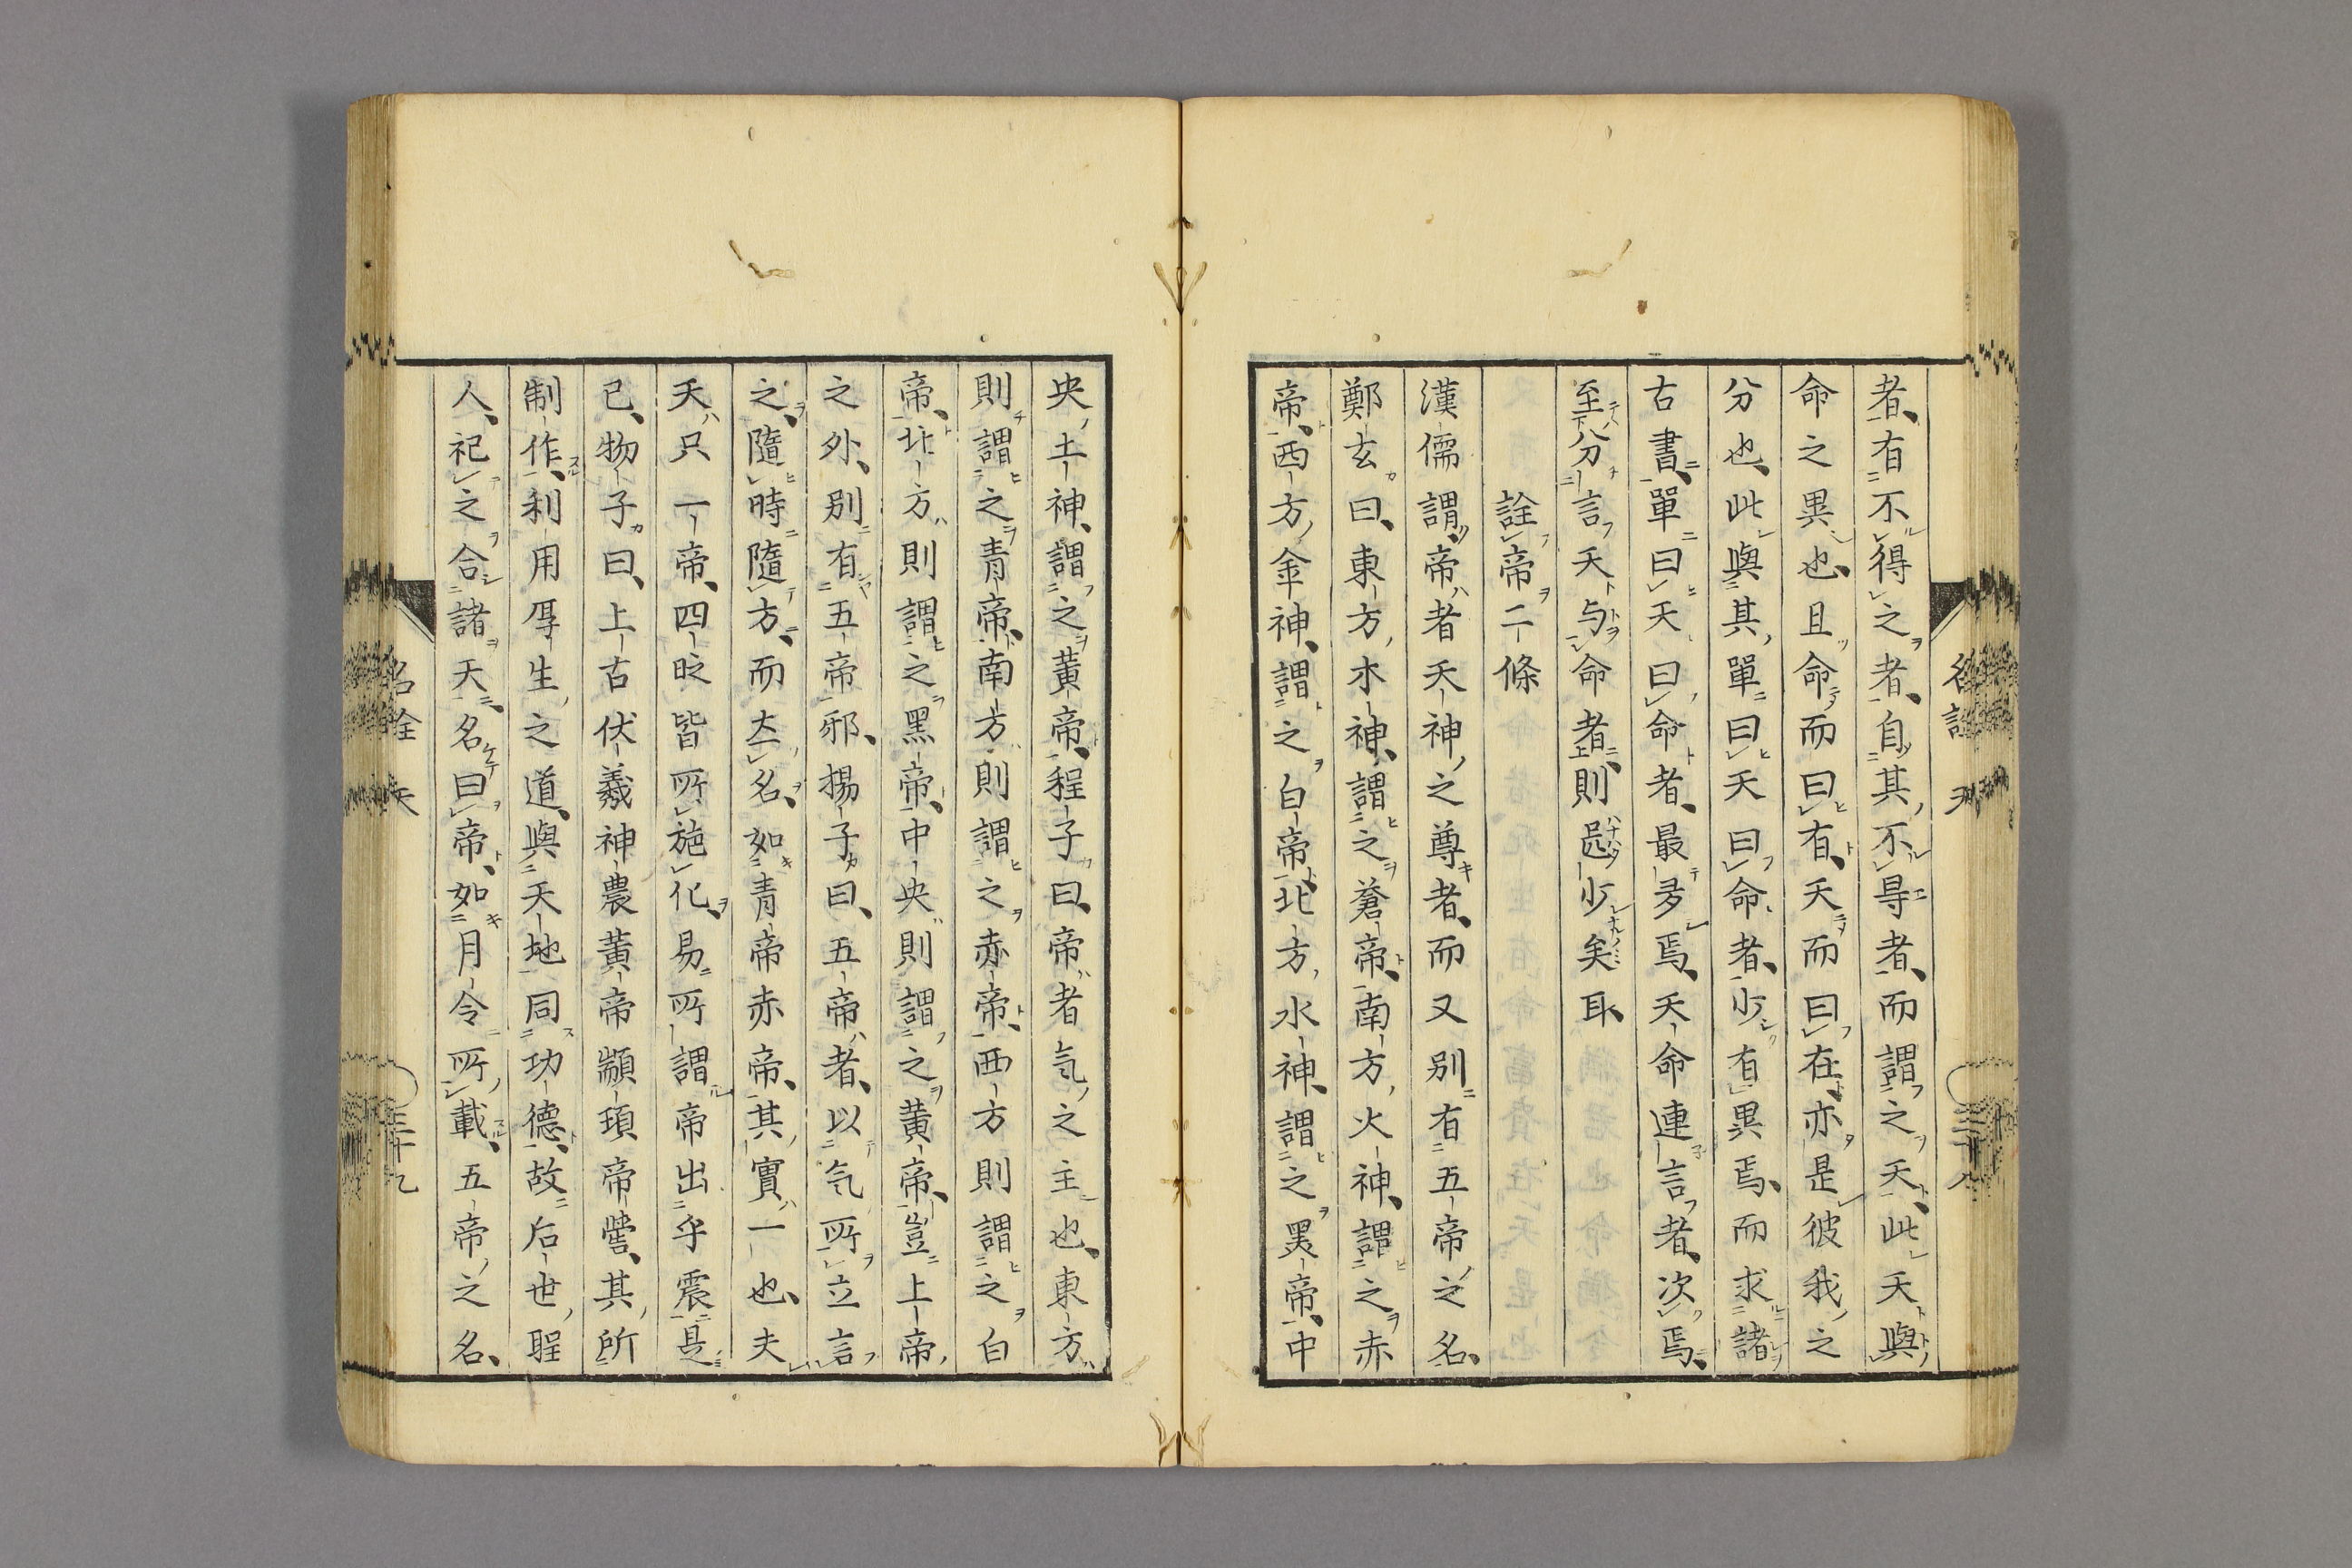 者有不得之者自其不㝵者而謂之天此天與
命之異也且命而曰有天而曰在亦是彼我之
分也此與其單曰天曰命者少有異焉而求諸
古書單曰天曰命者最多焉天命連言者次焉
至分言天与命者則尟少矣耳
詮帝二條
漢儒謂帝者天神之尊者而又别有五帝之名
鄭玄曰東方木神謂之蒼帝南方火神謂之赤
帝西方金神謂之白帝北方水神謂之黒帝中
央土神謂之黃帝程子曰帝者気之主也東方
則謂之青帝南方則謂之赤帝西方則謂之白
帝北方則謂之黑帝中央則謂之黃帝豈上帝
之外别有五帝邪揚子曰五帝者以気所立言
之隨時隨方而立名如青帝赤帝其實一也夫
天只一帝四時皆所施化易所謂帝出乎震是
已物子曰上古伏羲神農黃帝顓頊帝嚳其所
制作利用厚生之道與天地同功德故后世聖
人祀之合諸天名曰帝如月令所載五帝之名
名詮 天 三十八
名詮 天 三十九